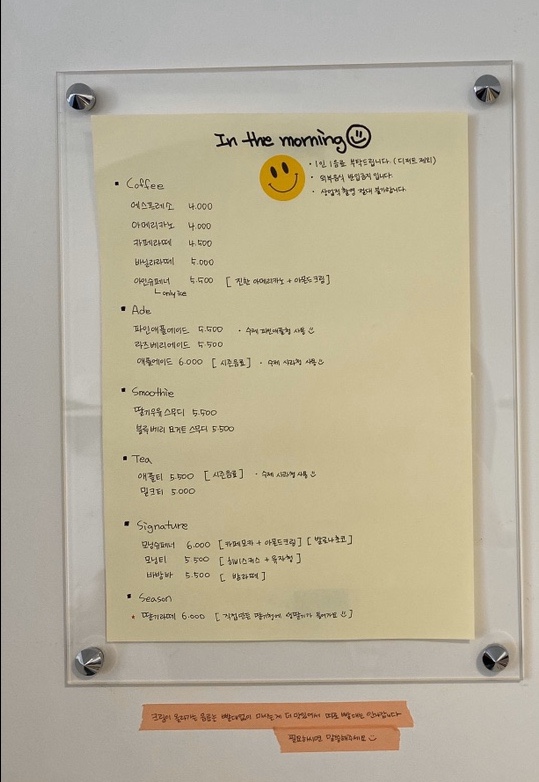 In the morning
· 1인 1음료 부탁드립니다. (디저트 제외)
· 외부음식 반입금지 입니다.
· 상업적 촬영 절대 불가합니다.
▪ Coffee
에스프레소 4.000
아메리카노 4.000
카페라떼 4.500
바닐라라떼 5.000
아인슈페너 5.500 [ 진한 아메리카노 + 아몬드크림 ]
only ice
▪ Ade
파인애플에이드 5.500 · 수제 파인애플청 사용
라즈베리에이드 5.500
애플에이드 6.000 [ 시즌음료 ] · 수제 사과청 사용
▪ Smoothie
딸기우유 스무디 5.500
블루베리 요거트 스무디 5.500
▪ Tea
애플티 5.500 [ 시즌음료 ] · 수제 사과청 사용
밀크티 5.000
▪ Signature
모닝슈페너 6.000 [ 카페모카 + 아몬드크림 ] [ 발로나초코 ]
모닝티 5.500 [ 히비스커스 + 유자청 ]
바밤바 5.500 [ 밤라떼 ]
▪ Season
★ 딸기라떼 6.000 [ 직접만든 딸기청에 생딸기가 들어가요 ]
크림이 올라가는 음료는 빨대없이 마시는게 더 맛있어서 따로 빨대는 안나갑니다
필요하시면 말씀해주세요